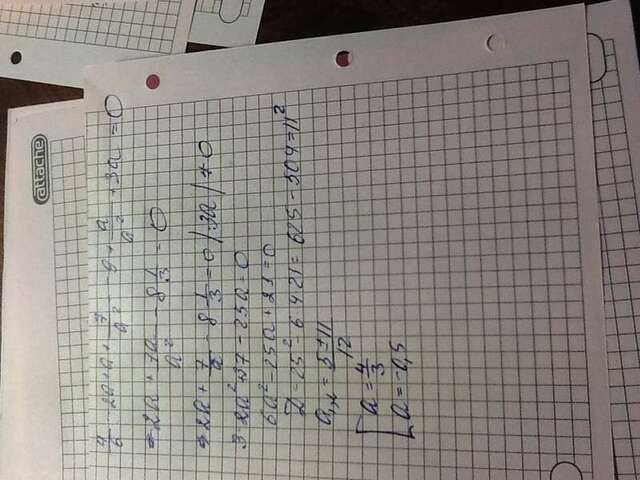 attache
4/6 - 2a + a + 7/a² - 9 + a/a² + 3a = 0
= 2a + 7a/a² - 8 1/3 = 0
= 2a + 7/a - 8 1/3 = 0 | 3a | ≠ 0
3·2a² + 37 - 25a = 0
6a² - 25a + 21 = 0
D = 25² - 6·4·21 = 625 - 504 = 11²
= 5 ± 11 / 12
a = 4/3
a = -0,5